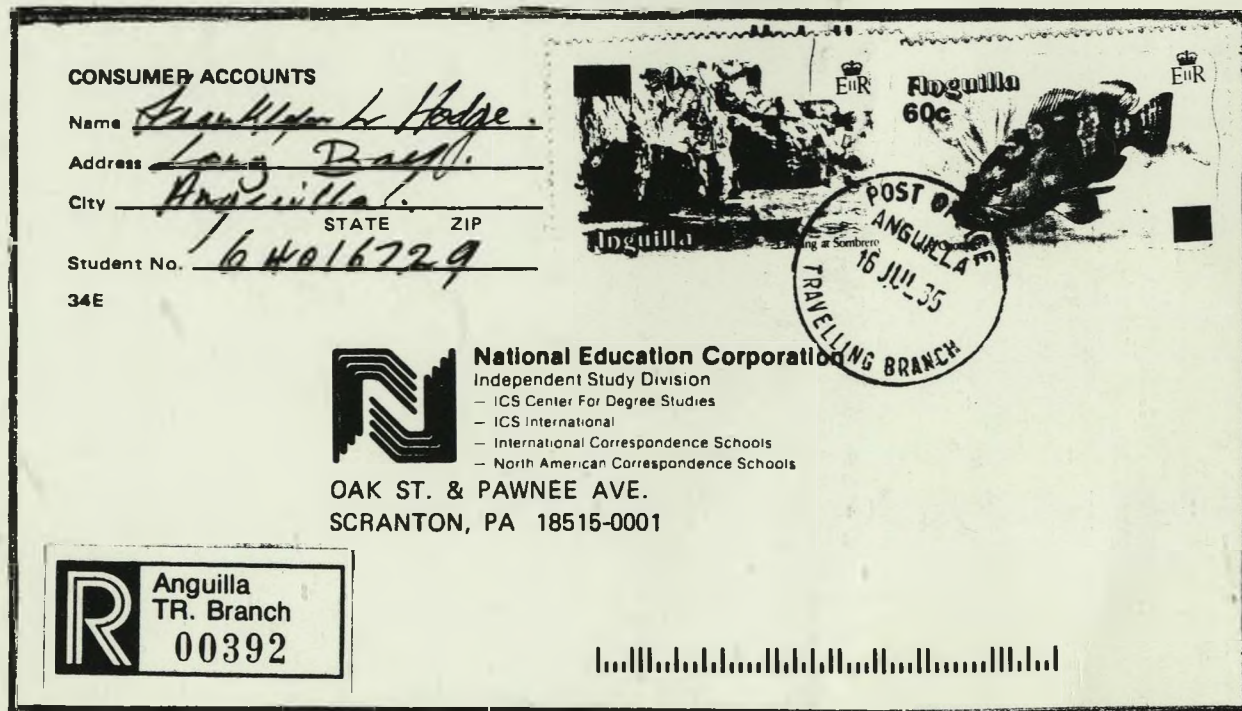 CONSUMER ACCOUNTS
Name Franklyn L Hodge.
Address Long
City Anguilla.
STATE ZIP
Student No. 16H016729
34E
EIIR
Anguilla
at Sombrero
EIIR
Anguilla
60c
POST OFFICE
ANGUILLA
16 JUL
TRAVELLING BRANCH
National Education Corporation
Independent Study Division
— ICS Center For Degree Studies
— ICS International
— International Correspondence Schools
— North American Correspondence Schools
OAK ST. & PAWNEE AVE.
SCRANTON, PA 18515-0001
R
Anguilla
TR. Branch
00392